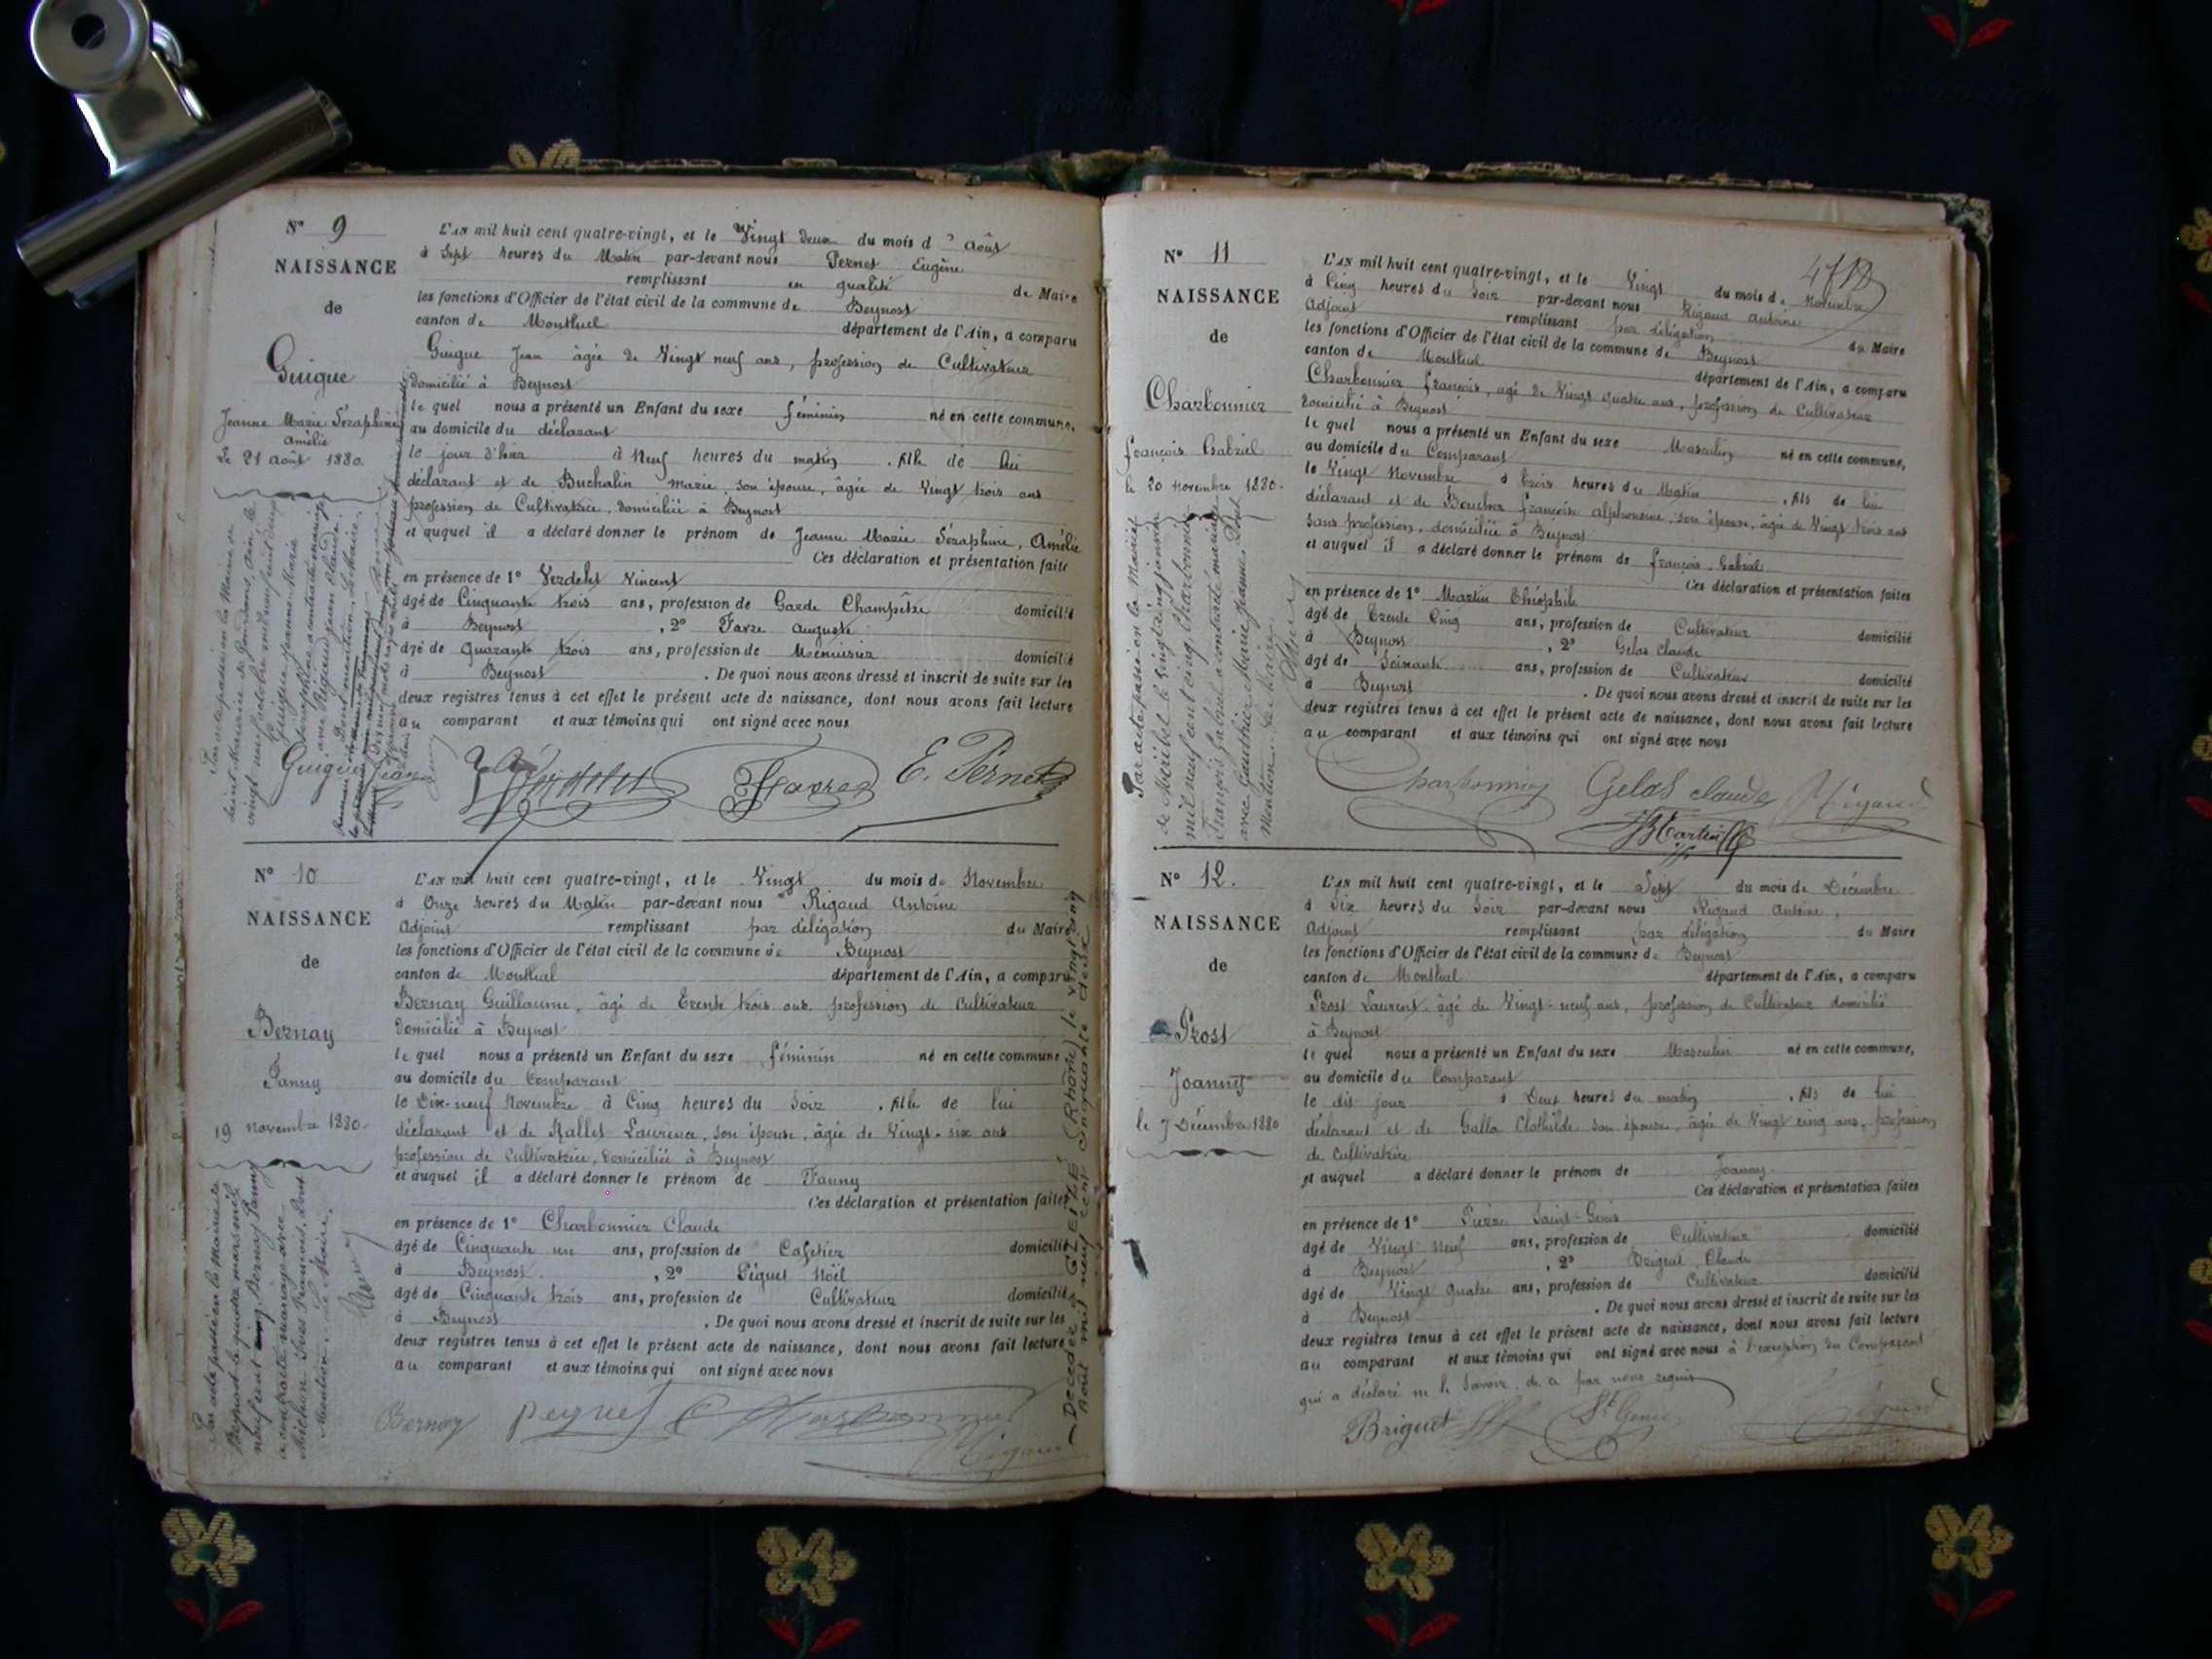 N° 9
NAISSANCE
de
Guigue
Jeanne Marie Séraphine
Amélie
Le 21 août 1880.
L'AN mil huit cent quatre-vingt, et le Vingt deux du mois d' août
à Sept heures du Matin par-devant nous Pernet Eugène
remplissant en qualité de Maire
les fonctions d'Officier de l'état civil de la commune de Beynost
canton de Montluel département de l'Ain, a comparu
Guigue Jean âgé de Vingt neuf ans, profession de Cultivateur
domicilié à Beynost
le quel nous a présenté un Enfant du sexe féminin né en cette commune,
au domicile du déclarant
le jour d'hier à Neuf heures du matin, fille de lui
déclarant et de Buchalin Marie, son épouse, âgée de Vingt trois ans
profession de Cultivatrice, domiciliée à Beynost
et auquel il a déclaré donner le prénom de Jeanne Marie Séraphine, Amélie
Ces déclaration et présentation faites
en présence de 1° Verdelet Vincent
âgé de Cinquante trois ans, profession de Garde Champêtre domicilié
à Beynost, 2° Favre Auguste
âgé de quarante trois ans, profession de Menuisier domicilié
à Beynost. De quoi nous avons dressé et inscrit de suite sur les
deux registres tenus à cet effet le présent acte de naissance, dont nous avons fait lecture
au comparant et aux témoins qui ont signé avec nous
Guigue Jean
Favre
E. Pernet
N° 10
NAISSANCE
de
Bernay
Fanny
19 novembre 1880.
L'AN mil huit cent quatre-vingt, et le Vingt du mois de Novembre
à Onze heures du Matin par-devant nous Rigaud Antoine
Adjoint remplissant par délégation du Maire
les fonctions d'Officier de l'état civil de la commune de Beynost
canton de Montluel département de l'Ain, a comparu
Bernay Guillaume, âgé de Trente trois ans, profession de Cultivateur
domicilié à Beynost
le quel nous a présenté un Enfant du sexe féminin né en cette commune
au domicile du Comparant
le Dix-neuf Novembre à Cinq heures du Soir, fille de lui
déclarant et de Rallet Laurence, son épouse, âgée de Vingt-six ans
profession de Cultivatrice, domiciliée à Beynost
et auquel il a déclaré donner le prénom de Fanny
Ces déclaration et présentation faites
en présence de 1° Charbonnier Claude
âgé de Cinquante un ans, profession de Cafetier domicilié
à Beynost, 2° Péguet Noël
âgé de Cinquante trois ans, profession de Cultivateur domicilié
à Beynost. De quoi nous avons dressé et inscrit de suite sur les
deux registres tenus à cet effet le présent acte de naissance, dont nous avons fait lecture
au comparant et aux témoins qui ont signé avec nous
Bernay
Rigaud
Par acte passé en la Mairie de
Beynost le quatre mars mil
neuf cent cinq, Bernay Fanny
a contracté mariage avec
Michon Yves François, Dont
Mention. Le Maire.
Décédée à (Rhône) le vingt cinq
Août mil neuf cent cinquante deux
N° 11
NAISSANCE
de
Charbonnier
François Gabriel
le 20 novembre 1880.
L'AN mil huit cent quatre-vingt, et le Vingt du mois de Novembre
à Cinq heures du Soir par-devant nous Rigaud Antoine
Adjoint remplissant par délégation du Maire
les fonctions d'Officier de l'état civil de la commune de Beynost
canton de Montluel département de l'Ain, a comparu
Charbonnier François, âgé de Vingt quatre ans, profession de Cultivateur
domicilié à Beynost
le quel nous a présenté un Enfant du sexe Masculin né en cette commune,
au domicile du Comparant
le Vingt Novembre à trois heures du Matin, fils de lui
déclarant et de Boucher Françoise Alphonsine, son épouse, âgée de Vingt trois ans
sans profession, domiciliée à Beynost
et auquel il a déclaré donner le prénom de François Gabriel
Ces déclaration et présentation faites
en présence de 1° Martin Théophile
âgé de Trente Cinq ans, profession de Cultivateur domicilié
à Beynost, 2° Gelas Claude
âgé de Soixante ans, profession de Cultivateur domicilié
à Beynost. De quoi nous avons dressé et inscrit de suite sur les
deux registres tenus à cet effet le présent acte de naissance, dont nous avons fait lecture
au comparant et aux témoins qui ont signé avec nous
Charbonnier Gelas claude Rigaud
Martin
Par acte passé en la Mairie
de Miribel le vingt cinq janvier
mil neuf cent cinq, Charbonnier
François Gabriel a contracté mariage
avec Gauthier Marie Jeanne. Dont
Mention. Le Maire.
N° 12.
NAISSANCE
de
Prost
Joanny
le 7 Décembre 1880
L'AN mil huit cent quatre-vingt, et le Sept du mois de Décembre
à Six heures du Soir par-devant nous Rigaud Antoine,
Adjoint remplissant par délégation du Maire
les fonctions d'Officier de l'état civil de la commune de Beynost
canton de Montluel département de l'Ain, a comparu
Prost Laurent, âgé de Vingt-neuf ans, profession de Cultivateur domicilié
à Beynost
le quel nous a présenté un Enfant du sexe Masculin né en cette commune,
au domicile du Comparant
le dit jour à Deux heures du matin, fils de lui
déclarant et de Galla Clothilde son épouse, âgée de Vingt cinq ans, profession
de Cultivatrice
et auquel a déclaré donner le prénom de Joanny
Ces déclaration et présentation faites
en présence de 1° Pierre Saint-Genis
âgé de Vingt Neuf ans, profession de Cultivateur domicilié
à Beynost, 2° Briguet Claude
âgé de Vingt quatre ans, profession de Cultivateur domicilié
à Beynost. De quoi nous avons dressé et inscrit de suite sur les
deux registres tenus à cet effet le présent acte de naissance, dont nous avons fait lecture
au comparant et aux témoins qui ont signé avec nous à l'exception du Comparant
qui a déclaré ne le savoir, de ce par nous requis
Briguet St Genis Rigaud